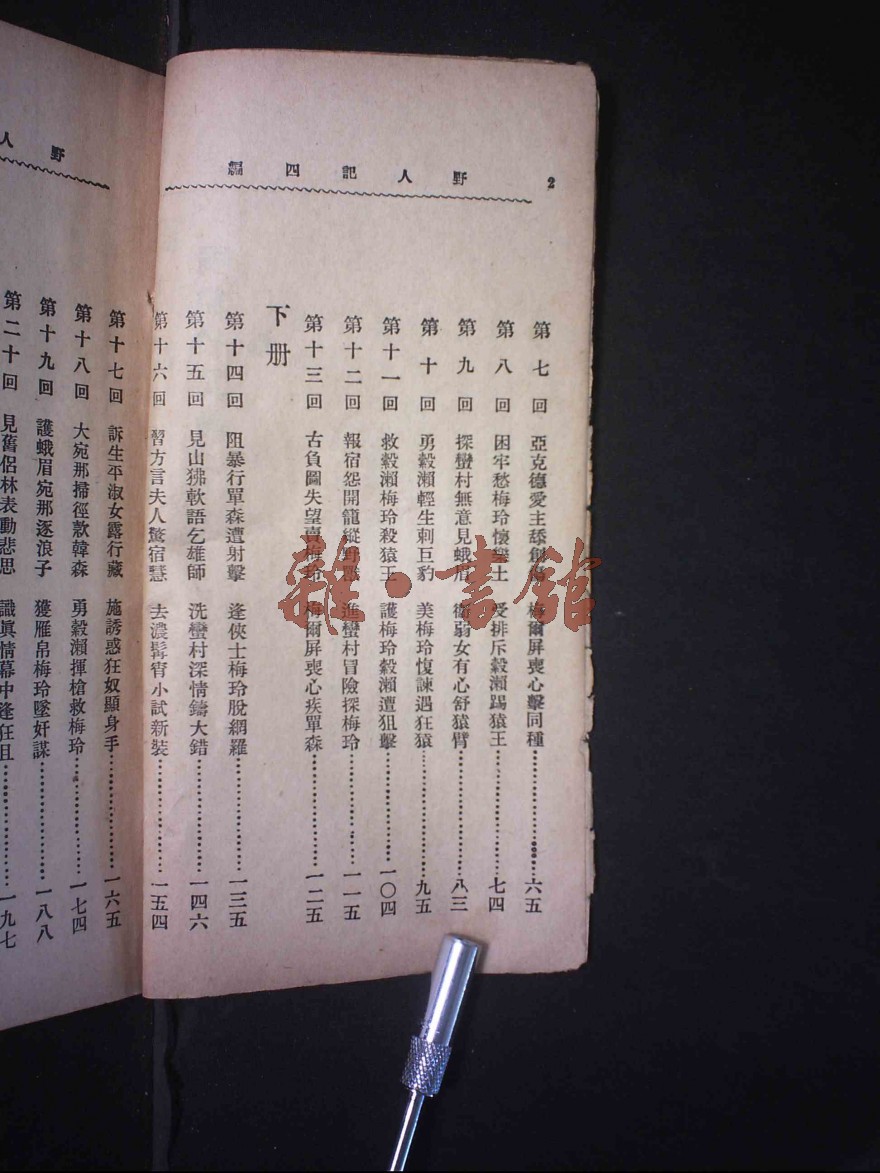 2 野人記四編
第七回 亞克德愛主舔創 梅爾屏喪心擊同種……六五
第八回 困牢愁梅玲懷樂土 受排斥穀瀬踢猿王……七四
第九回 探蠻村無意見蛾眉 衛弱女有心舒猿臂……八三
第十回 勇穀瀬輕生刺巨豹 美梅玲愎諫遇狂猿……九五
第十一回 救穀瀬梅玲殺猿王 護梅玲穀瀬遭狙擊……一〇四
第十二回 報宿怨開龍縱野 進蠻村冒險探梅玲……一一五
第十三回 古負圖失望賣梅玲 梅爾屏喪心疾單森……一二五
下册
第十四回 阻暴行單森遭射擊 逢俠士梅玲脫網羅……一三五
第十五回 見山狒軟語乞雄師 洗蠻村深情鑄大錯……一四六
第十六回 習方言夫人驚宿慧 去濃髯宵小試新裝……一五四
野人
第十七回 訴生平淑女露行藏 施誘惑狂奴顯身手……一六五
第十八回 大宛那掃徑款韓森 勇穀瀬揮槍救梅玲……一七四
第十九回 護蛾眉宛那逐浪子 獲雁帛梅玲墜奸謀……一八八
第二十回 見舊侶林表動悲思 識眞情幕中逢狂且……一九七
雜·書館